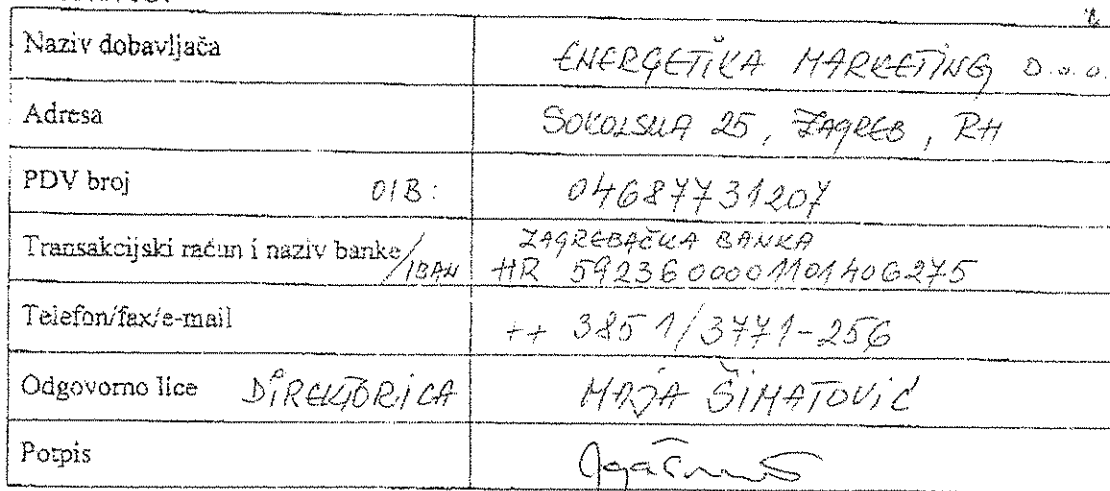 Naziv dobavljača ENERGETIKA MARKETING D.o.o.
Adresa SOKOLSKA 25, ZAGREB, RH
PDV broj OIB: 04687731207
Transakcijski račun i naziv banke/IBAN ZAGREBAČKA BANKA
HR 5923600001101406275
Telefon/fax/e-mail ++ 385 1/3771-256
Odgovorno lice DIREKTORICA MAJA ŠIMATOVIĆ
Potpis